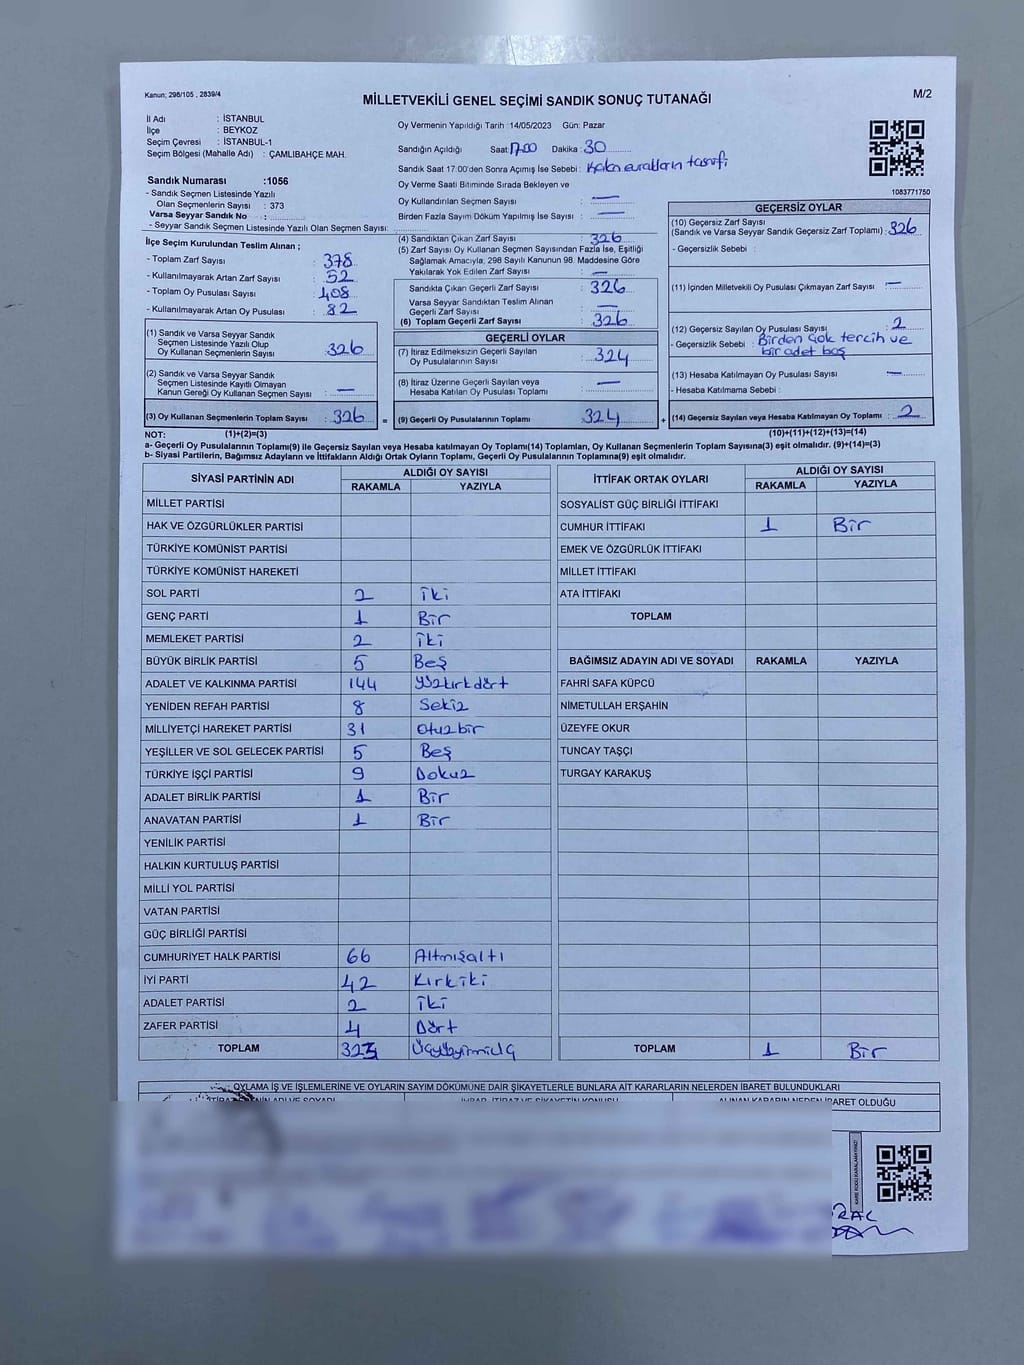 Kanun; 298/105 , 2839/4
MİLLETVEKİLİ GENEL SEÇİMİ SANDIK SONUÇ TUTANAĞI
M/2
İl Adı : İSTANBUL
İlçe : BEYKOZ
Seçim Çevresi : İSTANBUL-1
Seçim Bölgesi (Mahalle Adı) : ÇAMLIBAHÇE MAH.
Oy Vermenin Yapıldığı Tarih :14/05/2023 Gün: Pazar
Sandığın Açıldığı Saat:17.00 Dakika:30
Sandık Saat 17:00'den Sonra Açımış İse Sebebi : Kalan evrakların tasnifi
Oy Verme Saati Bitiminde Sırada Bekleyen ve
Oy Kullandırılan Seçmen Sayısı : —
Birden Fazla Sayım Döküm Yapılmış İse Sayısı : —
1083771750
Sandık Numarası :1056
- Sandık Seçmen Listesinde Yazılı
Olan Seçmenlerin Sayısı : 373
Varsa Seyyar Sandık No :
- Seyyar Sandık Seçmen Listesinde Yazılı Olan Seçmen Sayısı:
İlçe Seçim Kurulundan Teslim Alınan ;
- Toplam Zarf Sayısı : 378
- Kullanılmayarak Artan Zarf Sayısı : 52
- Toplam Oy Pusulası Sayısı : 408
- Kullanılmayarak Artan Oy Pusulası : 82
(1) Sandık ve Varsa Seyyar Sandık
Seçmen Listesinde Yazılı Olup
Oy Kullanan Seçmenlerin Sayısı : 326
(2) Sandık ve Varsa Seyyar Sandık
Seçmen Listesinde Kayıtlı Olmayan
Kanun Gereği Oy Kullanan Seçmen Sayısı : —
(3) Oy Kullanan Seçmenlerin Toplam Sayısı : 326 =
(4) Sandıktan Çıkan Zarf Sayısı : 326
(5) Zarf Sayısı Oy Kullanan Seçmen Sayısından Fazla İse, Eşitliği
Sağlamak Amacıyla, 298 Sayılı Kanunun 98. Maddesine Göre
Yakılarak Yok Edilen Zarf Sayısı : —
Sandıkta Çıkan Geçerli Zarf Sayısı : 326
Varsa Seyyar Sandıktan Teslim Alınan
Geçerli Zarf Sayısı : —
(6) Toplam Geçerli Zarf Sayısı : 326
GEÇERLİ OYLAR
(7) İtiraz Edilmeksizin Geçerli Sayılan
Oy Pusulalarının Sayısı : 324
(8) İtiraz Üzerine Geçerli Sayılan veya
Hesaba Katılan Oy Pusulası Toplamı : —
(9) Geçerli Oy Pusulalarının Toplamı : 324 +
GEÇERSİZ OYLAR
(10) Geçersiz Zarf Sayısı
(Sandık ve Varsa Seyyar Sandık Geçersiz Zarf Toplamı) : 326
- Geçersizlik Sebebi :
(11) İçinden Milletvekili Oy Pusulası Çıkmayan Zarf Sayısı : —
(12) Geçersiz Sayılan Oy Pusulası Sayısı : 2
- Geçersizlik Sebebi : Birden çok tercih ve
bir adet boş
(13) Hesaba Katılmayan Oy Pusulası Sayısı : —
- Hesaba Katılmama Sebebi :
(14) Geçersiz Sayılan veya Hesaba Katılmayan Oy Toplamı : 2
NOT: (1)+(2)=(3) (10)+(11)+(12)+(13)=(14)
a- Geçerli Oy Pusulalarının Toplamı(9) ile Geçersiz Sayılan veya Hesaba katılmayan Oy Toplamı(14) Toplamları, Oy Kullanan Seçmenlerin Toplam Sayısına(3) eşit olmalıdır. (9)+(14)=(3)
b- Siyasi Partilerin, Bağımsız Adayların ve İttifakların Aldığı Ortak Oyların Toplamı, Geçerli Oy Pusulalarının Toplamına(9) eşit olmalıdır.
SİYASİ PARTİNİN ADI ALDIĞI OY SAYISI
RAKAMLA YAZIYLA
MİLLET PARTİSİ
HAK VE ÖZGÜRLÜKLER PARTİSİ
TÜRKİYE KOMÜNİST PARTİSİ
TÜRKİYE KOMÜNİST HAREKETİ
SOL PARTİ 2 İki
GENÇ PARTİ 1 Bir
MEMLEKET PARTİSİ 2 İki
BÜYÜK BİRLİK PARTİSİ 5 Beş
ADALET VE KALKINMA PARTİSİ 144 Yüzkırkdört
YENİDEN REFAH PARTİSİ 8 Sekiz
MİLLİYETÇİ HAREKET PARTİSİ 31 Otuzbir
YEŞİLLER VE SOL GELECEK PARTİSİ 5 Beş
TÜRKİYE İŞÇİ PARTİSİ 9 Dokuz
ADALET BİRLİK PARTİSİ 1 Bir
ANAVATAN PARTİSİ 1 Bir
YENİLİK PARTİSİ
HALKIN KURTULUŞ PARTİSİ
MİLLİ YOL PARTİSİ
VATAN PARTİSİ
GÜÇ BİRLİĞİ PARTİSİ
CUMHURİYET HALK PARTİSİ 66 Altmışaltı
İYİ PARTİ 42 Kırkiki
ADALET PARTİSİ 2 İki
ZAFER PARTİSİ 4 Dört
TOPLAM 323
İTTİFAK ORTAK OYLARI ALDIĞI OY SAYISI
RAKAMLA YAZIYLA
SOSYALİST GÜÇ BİRLİĞİ İTTİFAKI
CUMHUR İTTİFAKI 1 Bir
EMEK VE ÖZGÜRLÜK İTTİFAKI
MİLLET İTTİFAKI
ATA İTTİFAKI
TOPLAM
BAĞIMSIZ ADAYIN ADI VE SOYADI RAKAMLA YAZIYLA
FAHRİ SAFA KÜPCÜ
NİMETULLAH ERŞAHİN
ÜZEYFE OKUR
TUNCAY TAŞÇI
TURGAY KARAKUŞ
TOPLAM 1 Bir
OYLAMA İŞ VE İŞLEMLERİNE VE OYLARIN SAYIM DÖKÜMÜNE DAİR ŞİKAYETLERLE BUNLARA AİT KARARLARIN NELERDEN İBARET BULUNDUKLARI
ALINAN KARARIN NEDEN İBARET OLDUĞU